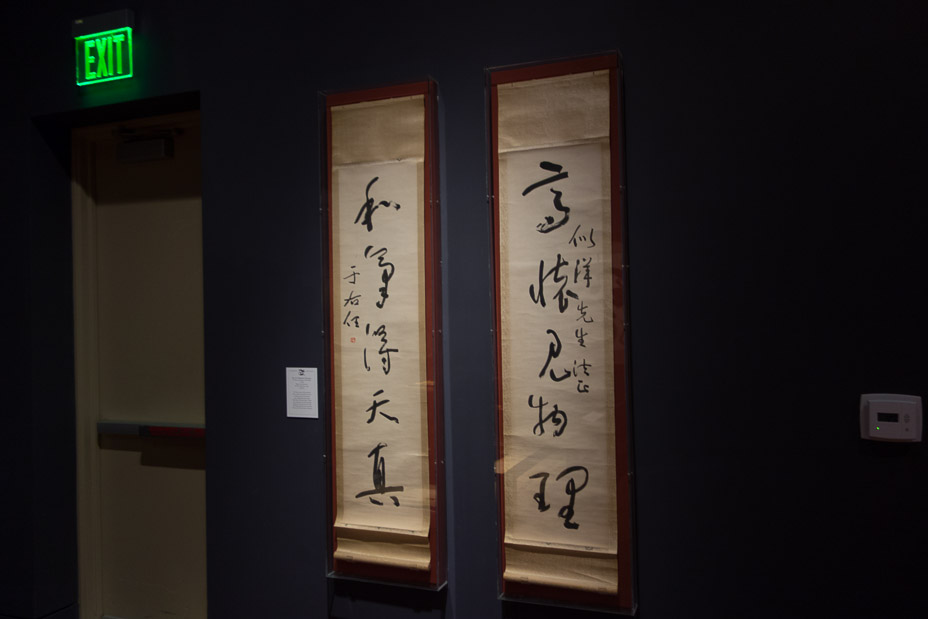 EXIT
高懷見物理
似洋先生法正
和氣得天真
于右任